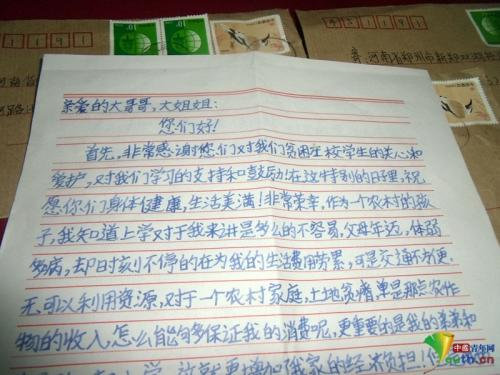 亲爱的大哥哥，大姐姐：
您们好！
首先，非常感谢您们对我们贫困在校学生的关心和
爱护，对我们学习的支持和鼓励在这特别的日子里，祝
愿你们身体健康，生活美满！非常荣幸，作为一个农村的孩
子，我知道上学对于我来讲是多么的不容易，父母年迈，体弱
多病，却时刻不停的在为我的生活费用劳累，可是交通不方便，
无可以利用资源，对于一个农村家庭，土地贫瘠，单是那点农作
物的收入，怎么能够多保证我的消费呢，更重要的是我的亲和
大学，这就更增加我家的经济负担！但
河南省郑州市新郑双湖
中国青年网